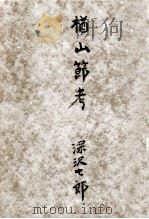 楢山節考
深沢七郎